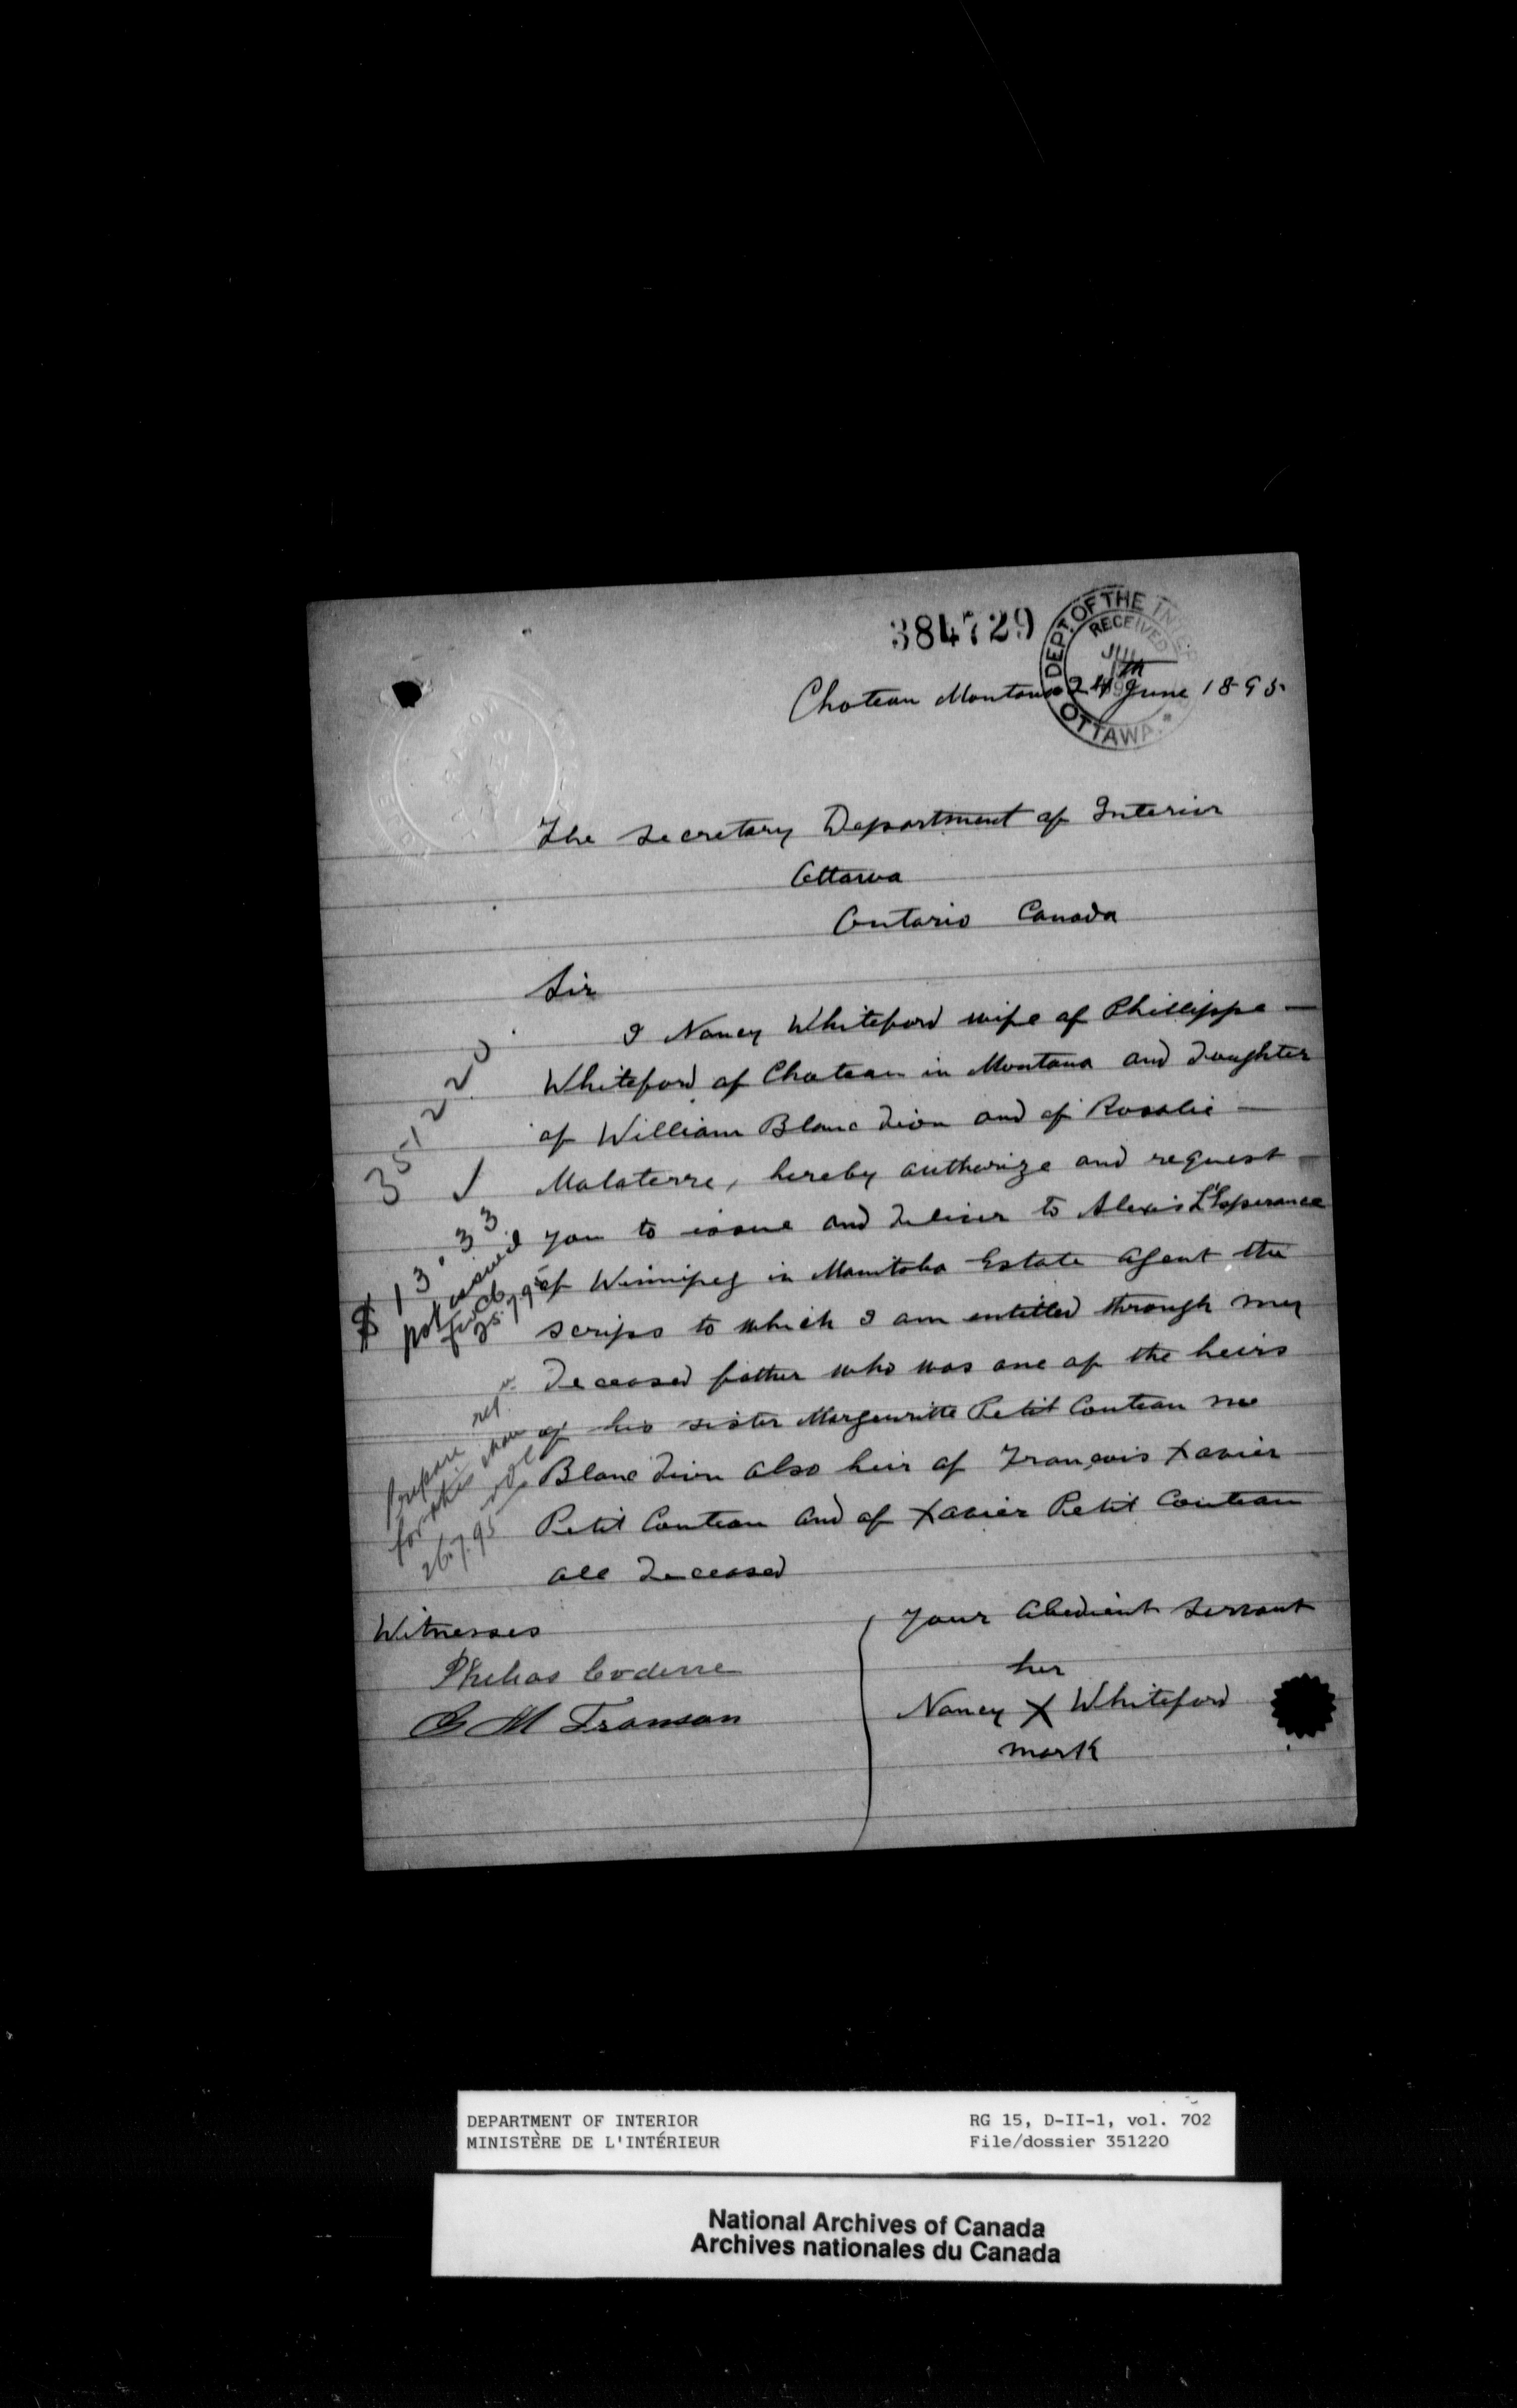 384729
DEPT. OF THE INTERIOR
RECEIVED
JUL
OTTAWA
Choteau Montana 24th June 1895
The Secretary Department of Interior
Ottawa
Ontario Canada
Sir
I Nancy Whiteford wife of Phillippe —
Whiteford of Choteau in Montana and daughter
of William Blanc dion and of Rosalie —
Malaterre, hereby authorize and request —
you to issue and deliver to Alexis L'Esperance
of Winnipeg in Manitoba Estate Agent the
scrips to which I am entitled through my
deceased father who was one of the heirs
of his sister Margeuritte Petit Couteau née
Blanc dion also heir of François Xavier
Petit Couteau and of Xavier Petit Couteau
all deceased
Your Obedient Servant
her
Nancy X Whiteford
mark
Witnesses
Phileas Coderre
G M Transon
351220
$13.33
not issued
25.7.95
Prepare reqn.
for this man
26.7.95
DEPARTMENT OF INTERIOR
MINISTÈRE DE L'INTÉRIEUR
RG 15, D-II-1, vol. 702
File/dossier 351220
National Archives of Canada
Archives nationales du Canada